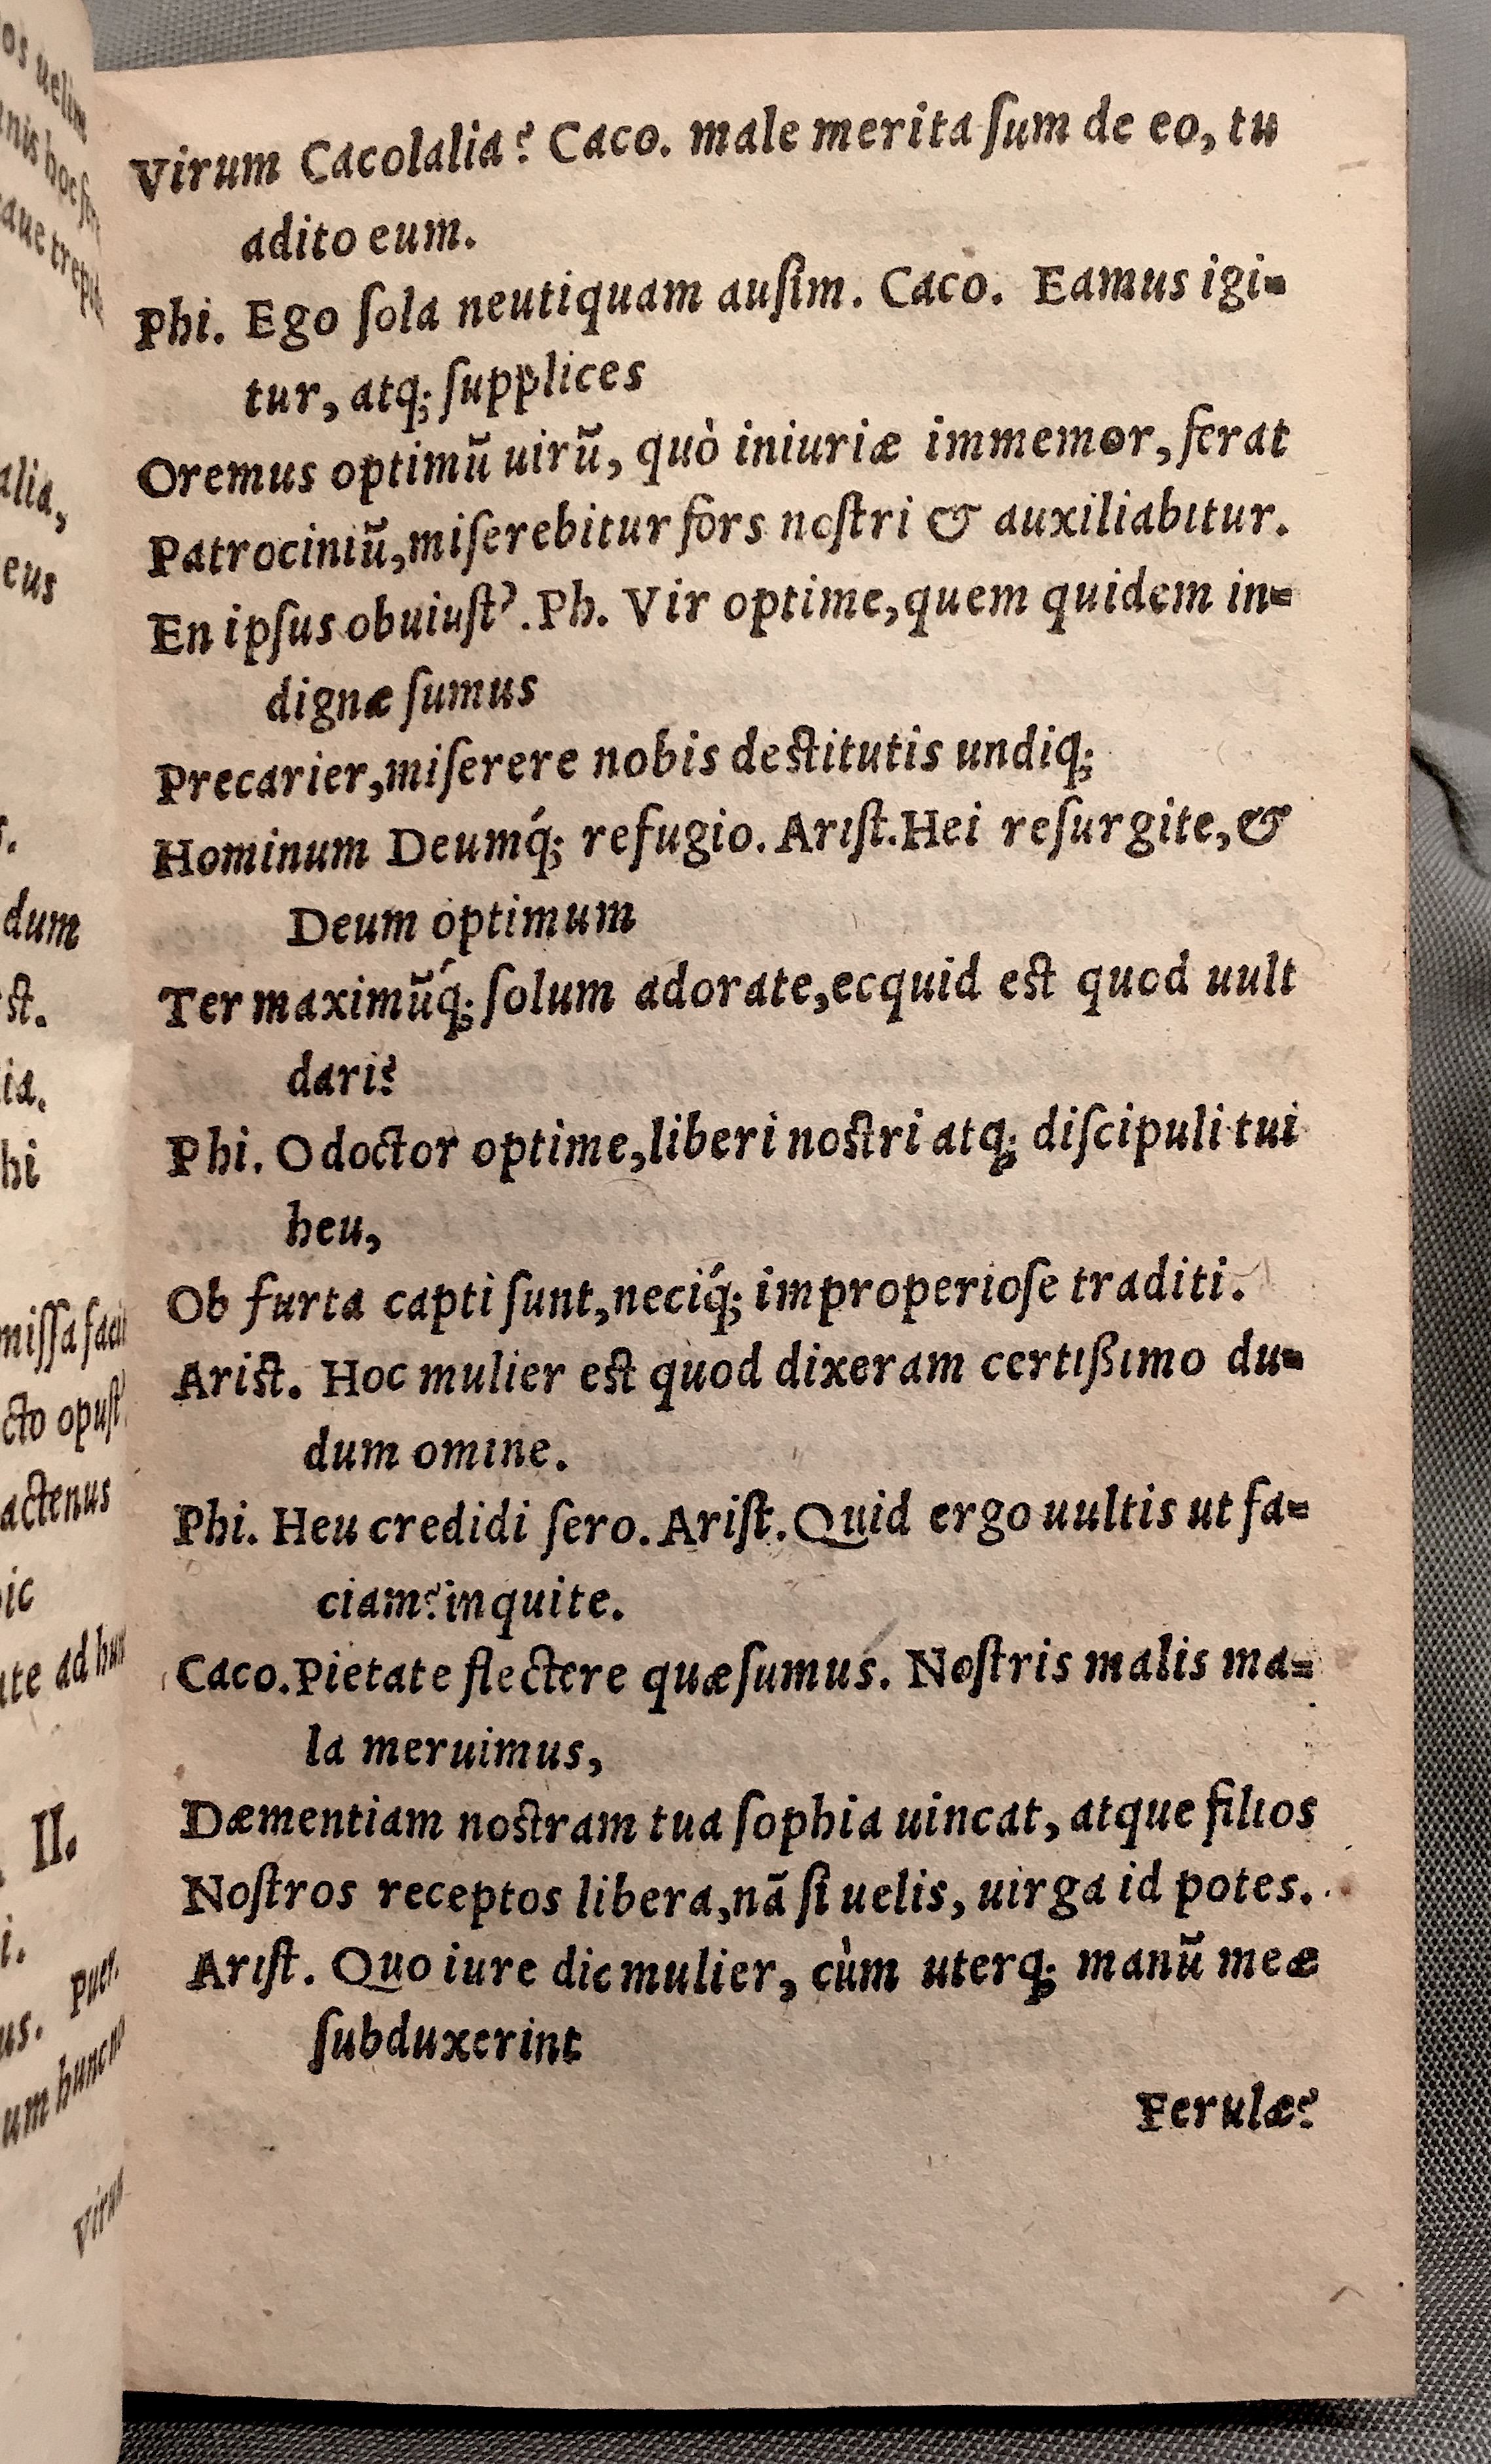 Virum Cacolalia? Caco. male merita ſum de eo, tu
adito eum.
Phi. Ego ſola neutiquam auſim. Caco. Eamus igi=
tur, atq; ſupplices
Oremus optimũ uirũ, quò iniuriæ immemor, ferat
Patrociniũ, miſerebitur fors noſtri & auxiliabitur.
En ipſus obuiuſt'. Ph. Vir optime, quem quidem in=
dignæ ſumus
Precarier, miſerere nobis deſtitutis undiq;
Hominum Deumq́; refugio. Ariſt. Hei reſurgite, &
Deum optimum
Ter maximũq́; ſolum adorate, ecquid eſt quod uult
dari?
Phi. O doctor optime, liberi noſtri atq; diſcipuli tui
heu,
Ob furta capti ſunt, neciq́; improperioſe traditi.
Ariſt. Hoc mulier eſt quod dixeram certißimo du=
dum omine.
Phi. Heu credidi ſero. Ariſt. Quid ergo uultis ut fa=
ciam? inquite.
Caco. Pietate flectere quæſumus. Noſtris malis ma=
la meruimus,
Dæmentiam noſtram tua ſophia uincat, atque filios
Noſtros receptos libera, nã ſi uelis, uirga id potes.
Ariſt. Quo iure dic mulier, cùm uterq; manũ meæ
ſubduxerint
Ferulæ?